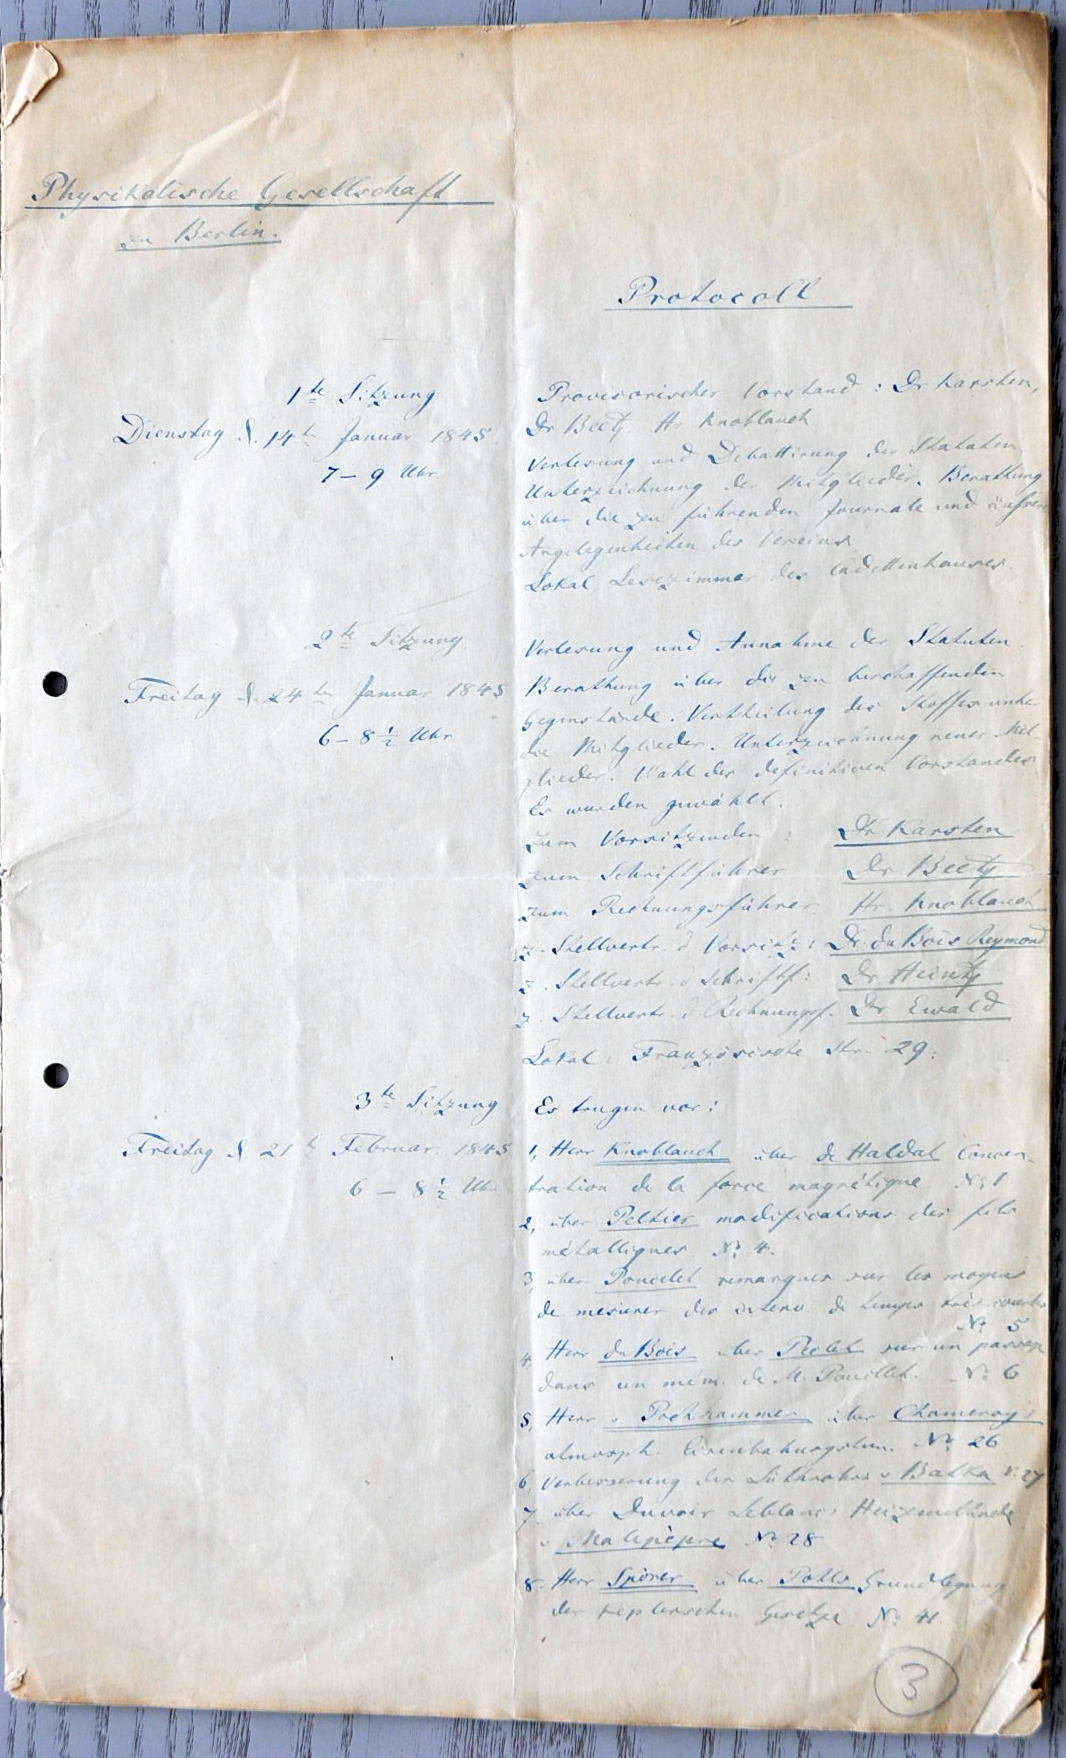 Physikalische Gesellschaft
zu Berlin.
Protocoll
1te Sitzung
Dienstag d. 14ten Januar 1845.
7 – 9 Uhr
Provisorischer Vorstand : Dr Karsten,
Dr Beetz. Hr Knoblauch
Verlesung und Debattirung der Statuten
Unterzeichnung der Mitglieder. Berathung
über die zu führenden Journale und äußren
Angelegenheiten des Vereins.
Lokal Lesezimmer des Cadettenhauses.
2te Sitzung
Freitag d. 24ten Januar 1845
6 – 8 1/2 Uhr
Verlesung und Annahme der Statuten.
Berathung über die zu beschaffenden
Gegenstände. Vertheilung des Stoffes unter
die Mitglieder. Unterzeichnung neuer Mit-
glieder. Wahl des definitiven Vorstandes
Es wurden gewählt.
zum Vorsitzenden : Dr Karsten
zum Schriftführer Dr Beetz
zum Rechnungsführer Hr Knoblauch
z. Stellvertr. d Vorsitz : Dr. du Bois Reymond
z. Stellvertr. d Schriftf : Dr Heintz
z. Stellvertr. d Rechnungsf. Dr Ewald
Lokal : Französische Str. 29.
3te Sitzung
Freitag d. 21t Februar. 1845
6 – 8 1/2 Uhr
Es trugen vor :
1, Herr Knoblauch über de Haldat Concen-
tration de la force magnétique No 1
2, über Peltier modifications des fils
métalliques. No 4.
3, über Poncelet remarques sur les moyens
de mesurer des interv. de temps très courts
No 5
4, Herr du Bois über Peclet sur un passage
dans un mém. de M. Pouillet. No 6
5, Herr v Pockhammer über Chameroy's
atmosph. No 26
6, Verbesserung des Löthrohrs v Batka No 27
7. über Duvoir Leblanc's
v Malepèyre No 28
8. Herr Spörer über Pohls Grundlegung
der Keplerschen Gesetze No 41.
3